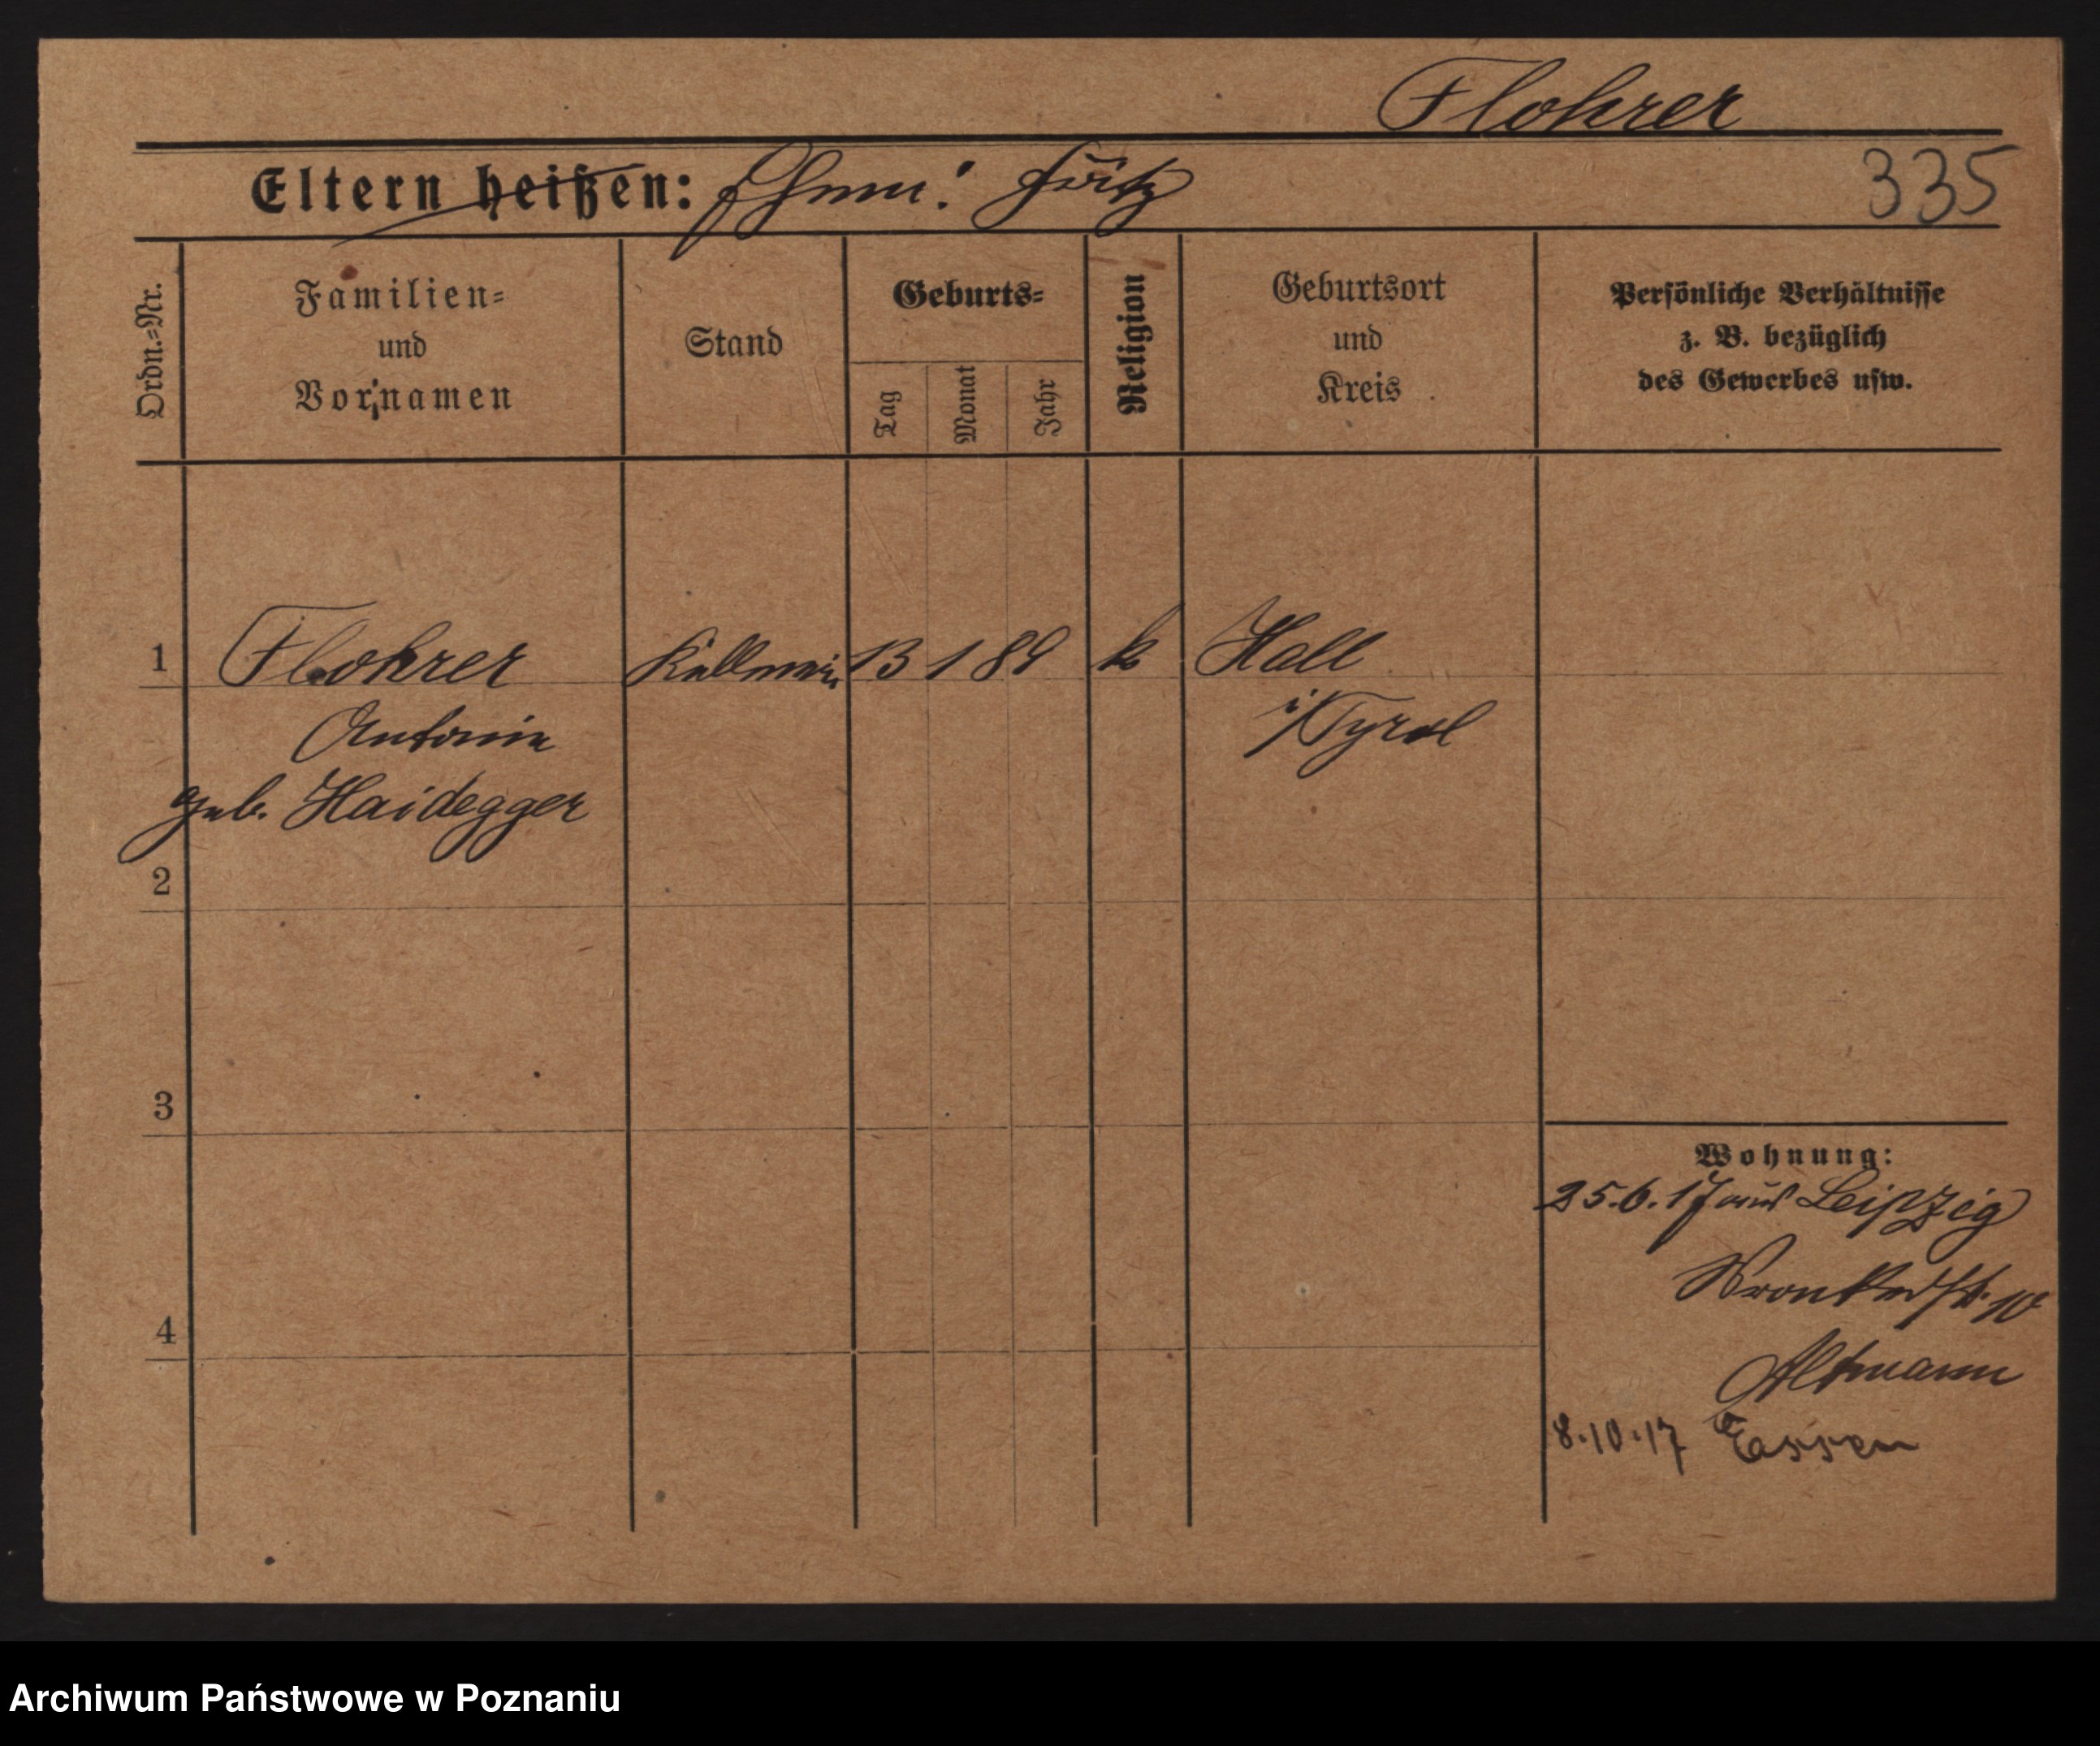 Flohrer
Eltern heißen: Ehem: Fritz
335
Ordn.=Nr.
Familien=
und
Vornamen
Stand
Geburts=
Tag
Monat
Jahr
Religion
Geburtsort
und
Kreis
Persönliche Verhältnisse
z. B. bezüglich
des Gewerbes usw.
1
Flohrer
Antonia
geb. Haidegger
Kellnerin
13 1 89
k
Hall
i/Tyrol
2
3
4
Wohnung:
25.6.17 aus Leipzig
Wronkerstr. 10
Altmann
8.10.17 Essen
Archiwum Państwowe w Poznaniu